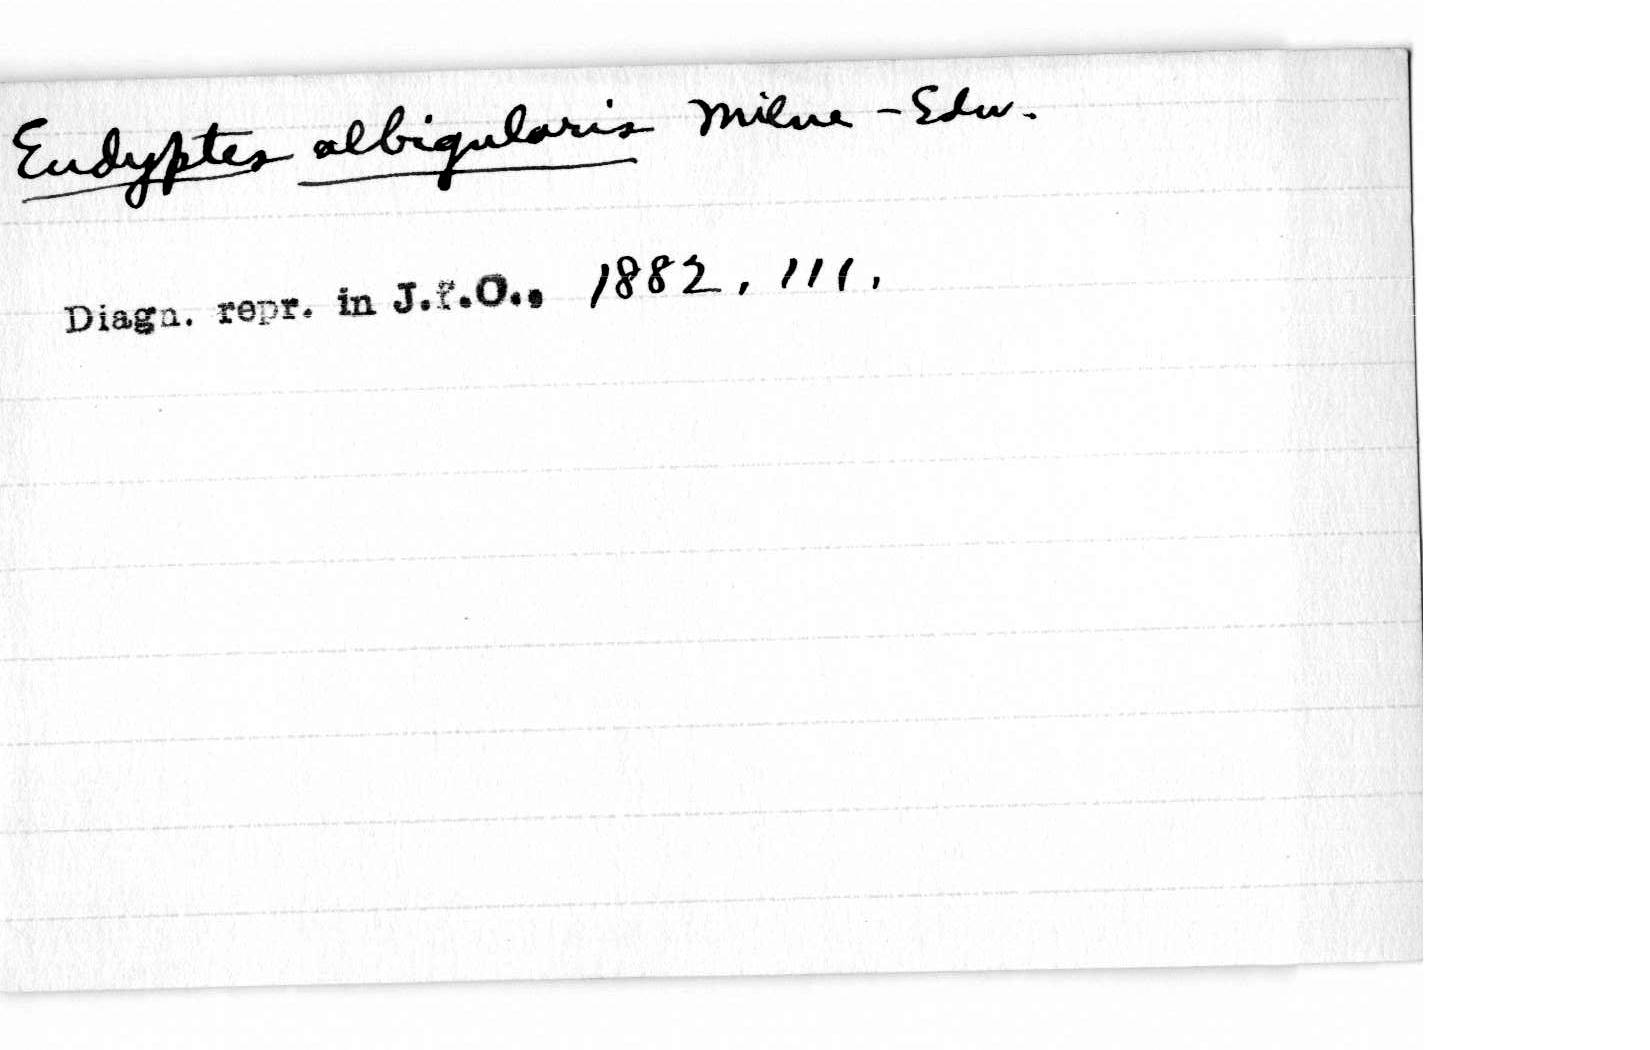 Eudyptes albigularis Milne-Edw.
Diagn. repr. in J.f.O., 1882, 111,